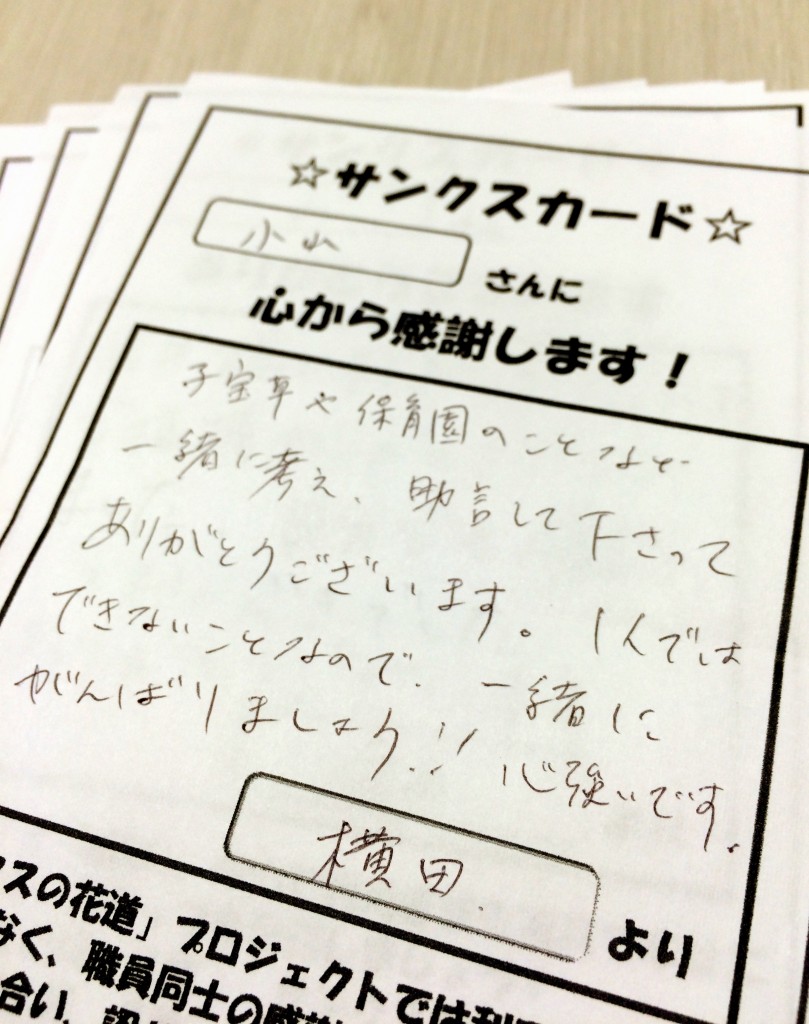 ☆サンクスカード☆
小山
さんに
心から感謝します！
子宝草や保育園のことなど
一緒に考え、助言して下さって
ありがとうございます。1人では
できないことなので、一緒に
がんばりましょう!! 心強いです。
横田
より
スの花道」プロジェクトでは利
なく、職員同士の感謝
合い、認